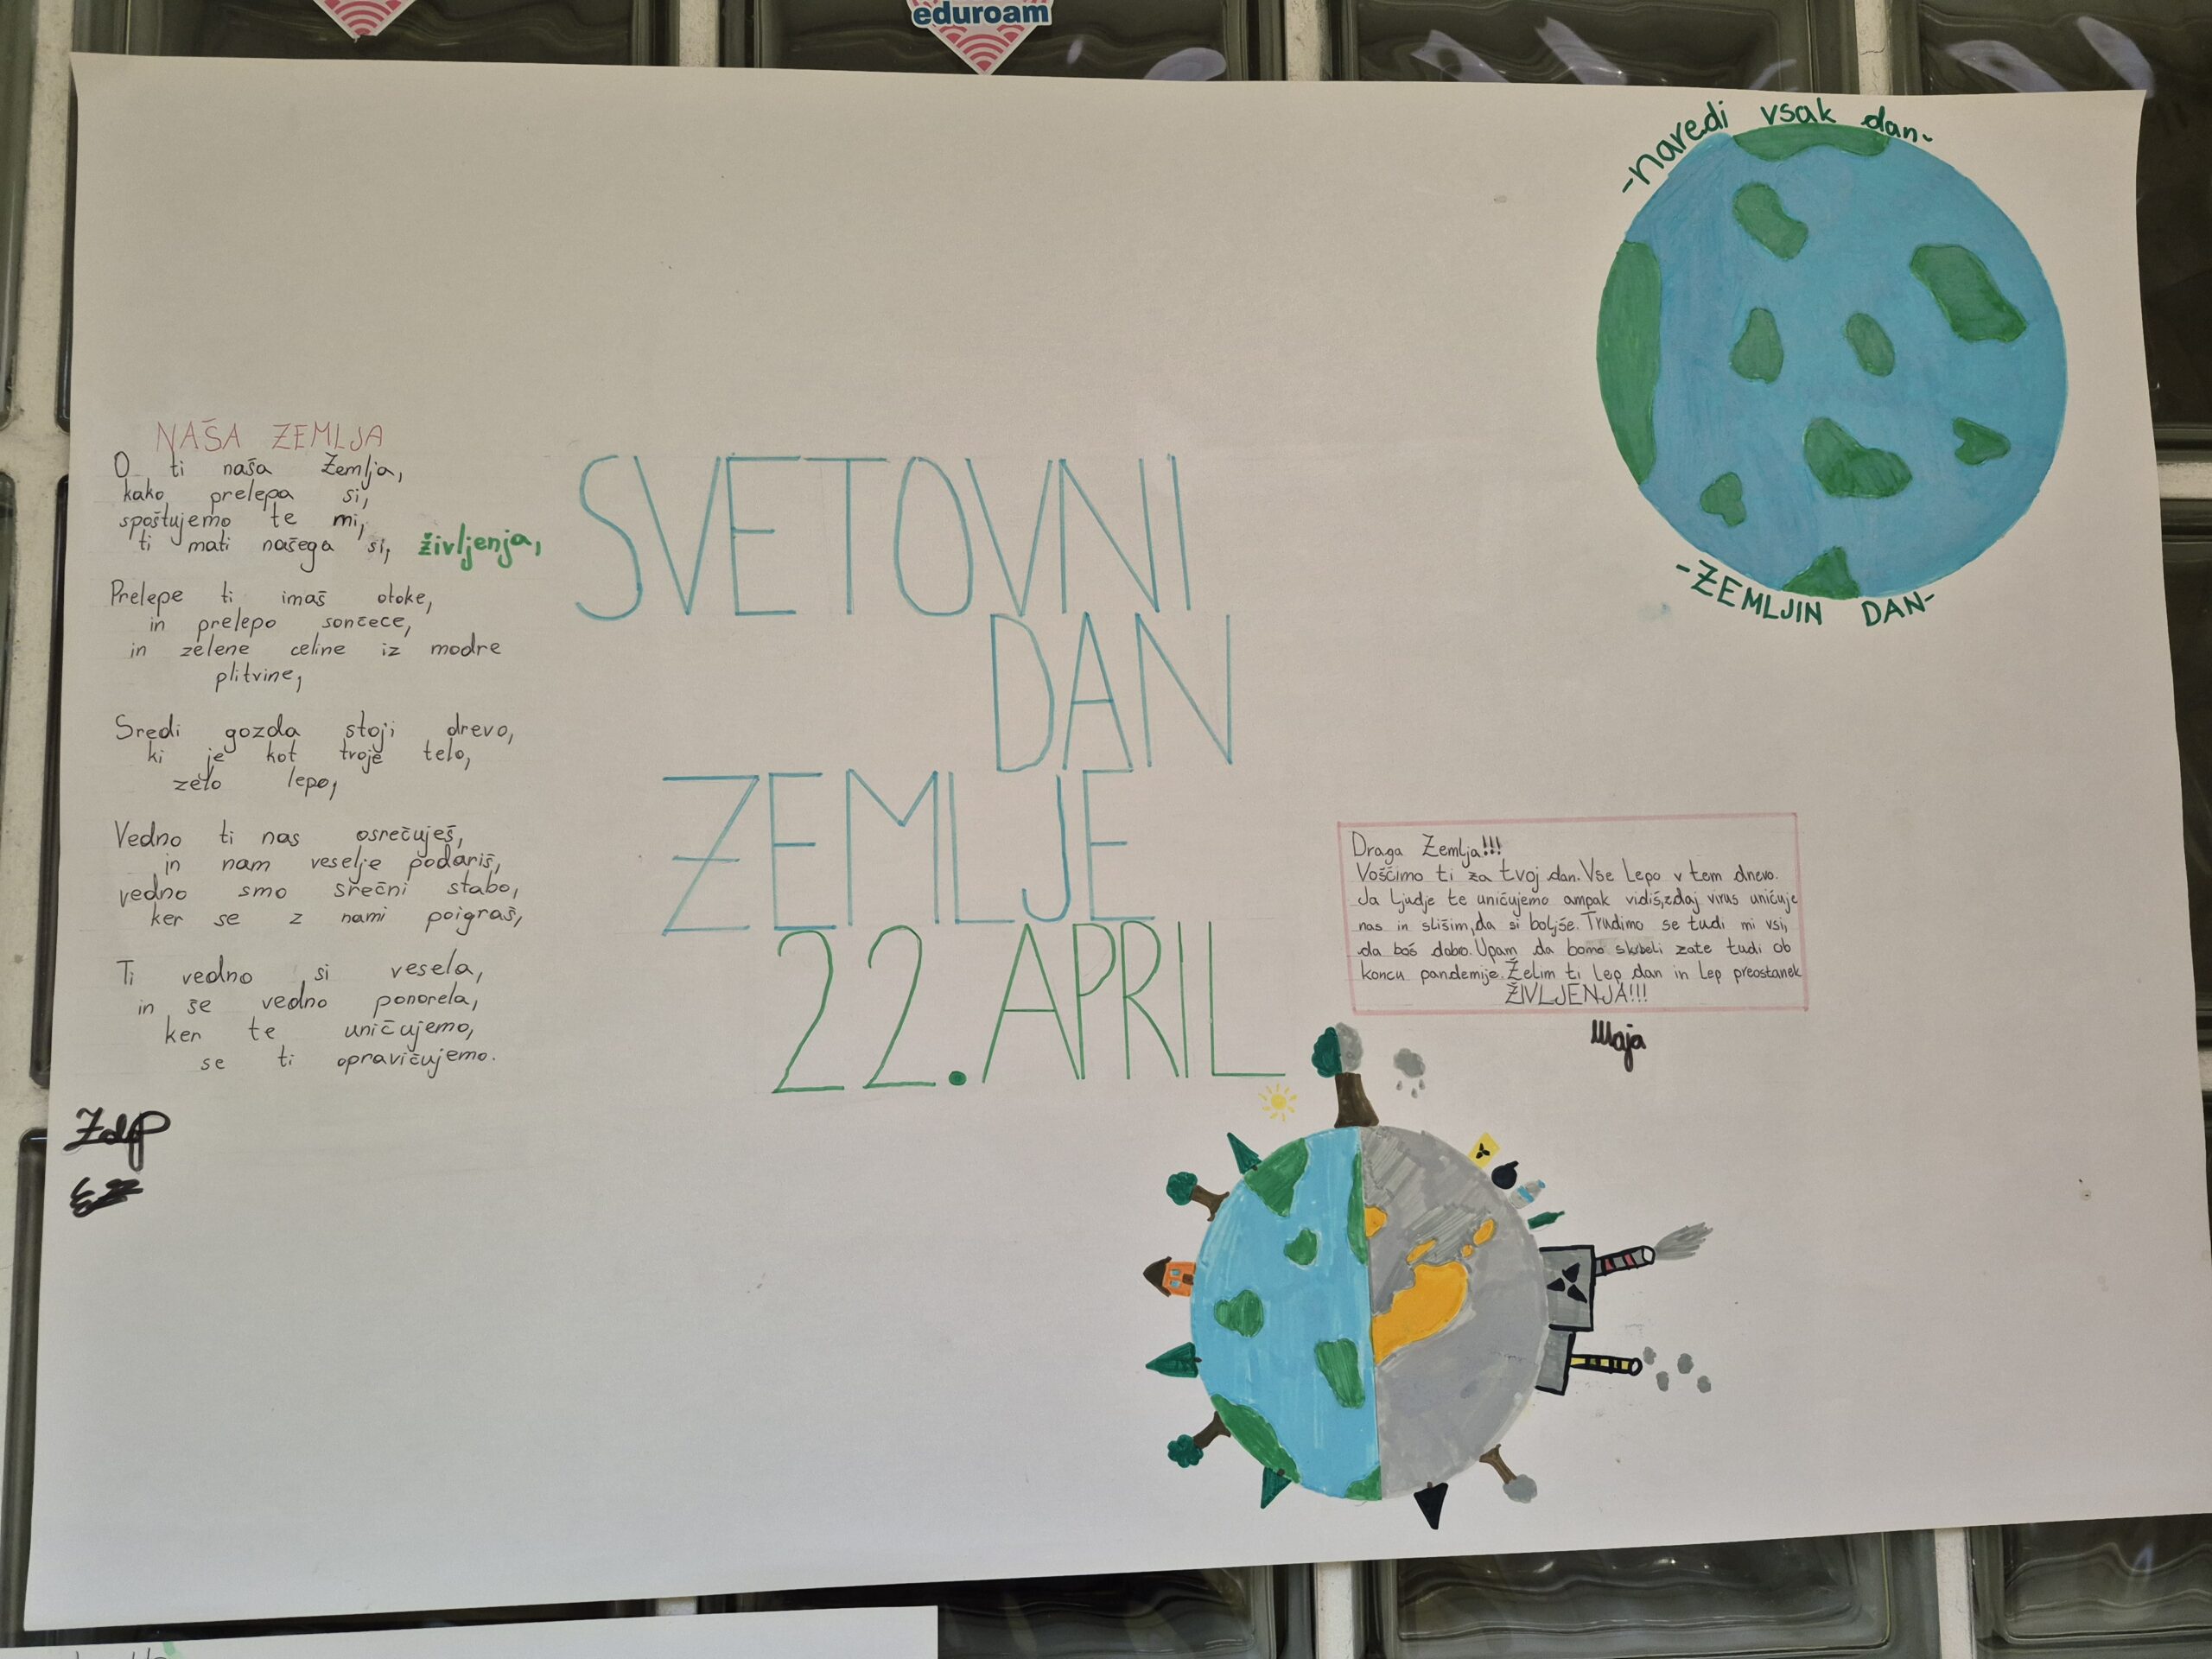 eduroam
-naredi vsak dan-
-ZEMLJIN DAN-
NAŠA ZEMLJA
O ti naša Zemlja,
kako prelepa si,
spoštujemo te mi,
ti mati našega si, življenja,
Prelepe ti imaš otoke,
in prelepo sončece,
in zelene celine iz modre
plitvine,
Sredi gozda stoji drevo,
ki je kot troje telo,
zelo lepo,
Vedno ti nas osrečuješ,
in nam veselje podariš,
vedno smo srečni stabo,
ker se z nami poigraš,
Ti vedno si vesela,
in še vedno ponorela,
ker te uničujemo,
se ti opravičujemo.
SVETOVNI
DAN
ZEMLJE
22. APRIL
Draga Zemlja!!!
Voščimo ti za tvoj dan. Vse Lepo v tem dnevo.
Ja Ljudje te uničujemo ampak vidiš, zdaj virus uničuje
nas in slišim, da si boljše. Trudimo se tudi mi vsi,
da boš dobro. Upam da bomo skrbeli zate tudi ob
koncu pandemije. Želim ti lep dan in lep preostanek
ŽIVLJENJA!!!
Maja